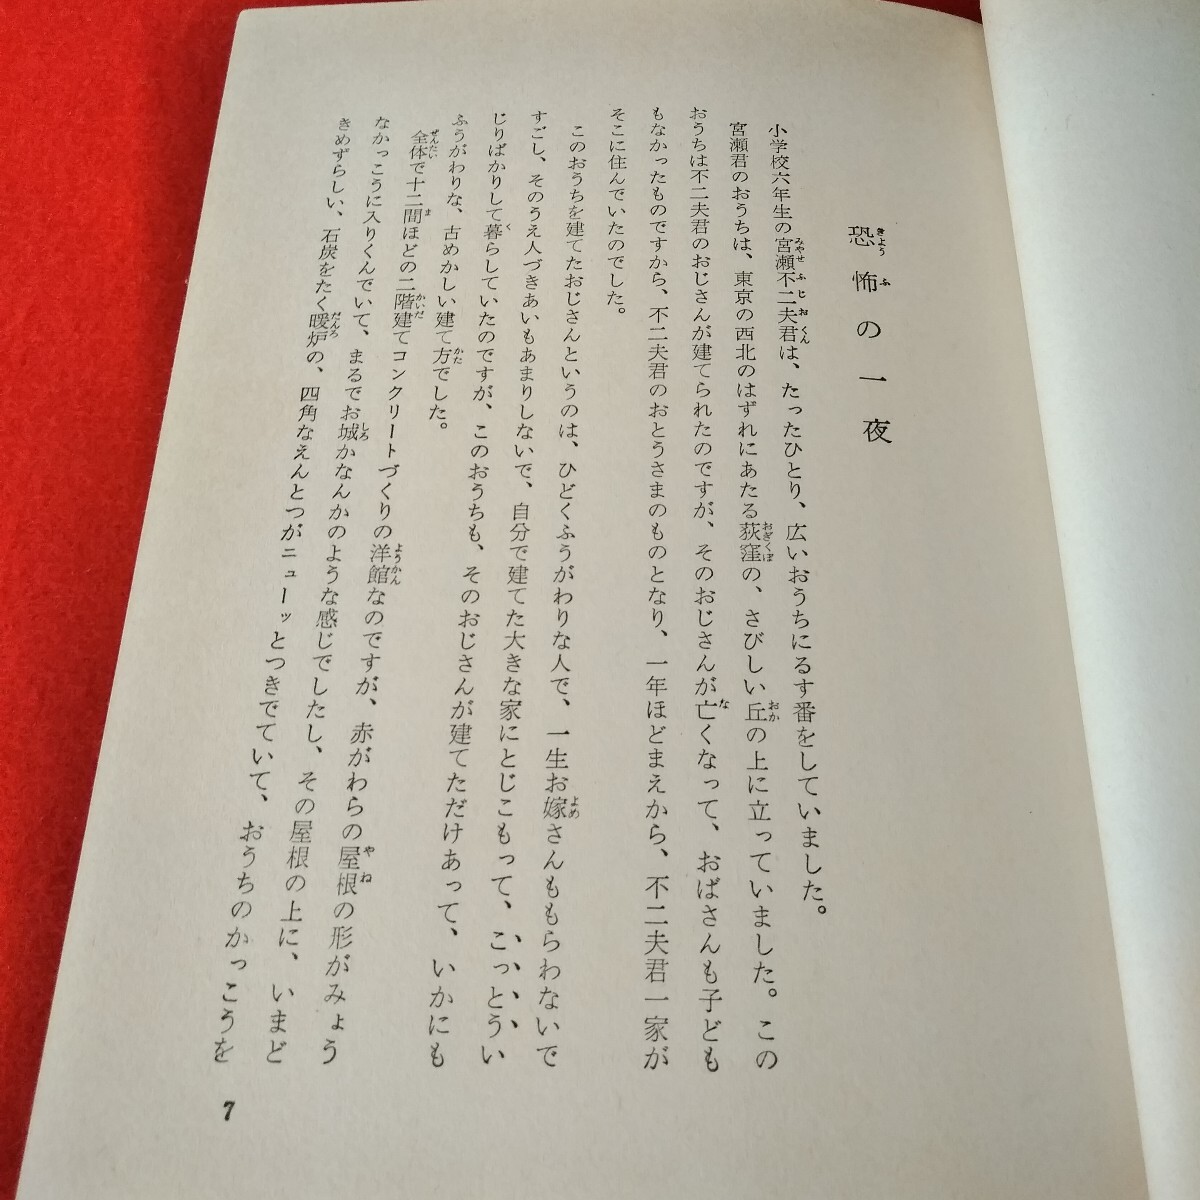 恐怖の一夜
小学校六年生の宮瀬不二夫君は、たったひとり、広いおうちにるす番をしていました。
宮瀬君のおうちは、東京の西北のはずれにあたる荻窪の、さびしい丘の上に立っていました。この
おうちは不二夫君のおじさんが建てられたのですが、そのおじさんが亡くなって、おばさんも子ども
もなかったものですから、不二夫君のおとうさまのものとなり、一年ほどまえから、不二夫君一家が
そこに住んでいたのでした。
このおうちを建てたおじさんというのは、ひどくふうがわりな人で、一生お嫁さんももらわないで
すごし、そのうえ人づきあいもあまりしないで、自分で建てた大きな家にとじこもって、こっとうい
じりばかりして暮らしていたのですが、このおうちも、そのおじさんが建てただけあって、いかにも
ふうがわりな、古めかしい建て方でした。
全体で十二間ほどの二階建てコンクリートづくりの洋館なのですが、赤がわらの屋根の形がみょう
なかっこうに入りくんでいて、まるでお城かなんかのような感じでしたし、その屋根の上に、いまど
きめずらしい、石炭をたく暖炉の、四角なえんとつがニューッとつきでていて、おうちのかっこうを
7